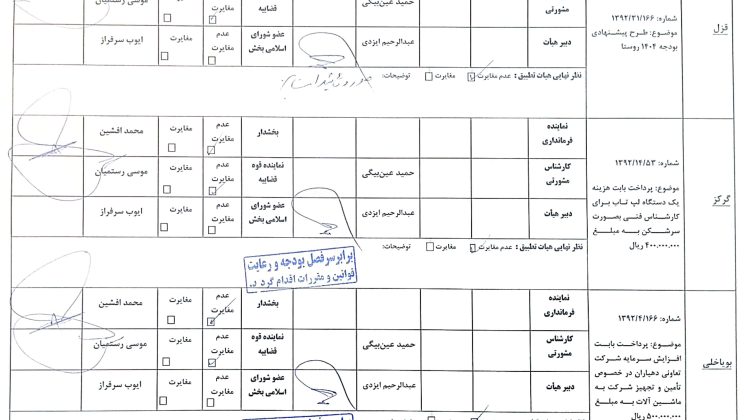 قزل
شماره: ۱۳۹۲/۳۱/۱۶۶
موضوع: طرح پیشنهادی
بودجه ۱۴۰۴ روستا
مشورتی
حمید عین‌بیگی
قضاییه
مغایرت
مغایرت
موسی رستمیان
دبیر هیأت
عبدالرحیم ایزدی
عضو شورای
اسلامی بخش
عدم
مغایرت
مغایرت
ایوب سرفراز
نظر نهایی هیات تطبیق: عدم مغایرت مغایرت توضیحات:
گرکز
شماره: ۱۳۹۲/۱۴/۵۳
موضوع: پرداخت بابت هزینه
یک دستگاه لپ تاپ برای
کارشناس فنی بصورت
سرشکن به مبلغ
۴۰۰.۰۰۰.۰۰۰ ریال
نماینده
فرمانداری
بخشدار
عدم
مغایرت
مغایرت
محمد افشین
کارشناس
مشورتی
حمید عین‌بیگی
نماینده قوه
قضاییه
عدم
مغایرت
مغایرت
موسی رستمیان
دبیر هیأت
عبدالرحیم ایزدی
عضو شورای
اسلامی بخش
عدم
مغایرت
مغایرت
ایوب سرفراز
نظر نهایی هیات تطبیق: عدم مغایرت مغایرت توضیحات:
برابر سرفصل بودجه و رعایت
قوانین و مقررات اقدام گردد.
بویاخلی
شماره: ۱۳۹۲/۴/۱۶۶
موضوع: پرداخت بابت
افزایش سرمایه شرکت
تعاونی دهیاران در خصوص
تأمین و تجهیز شرکت به
ماشین آلات به مبلغ
۵۰۰.۰۰۰.۰۰۰ ریال
نماینده
فرمانداری
بخشدار
عدم
مغایرت
مغایرت
محمد افشین
کارشناس
مشورتی
حمید عین‌بیگی
نماینده قوه
قضاییه
عدم
مغایرت
مغایرت
موسی رستمیان
دبیر هیأت
عبدالرحیم ایزدی
عضو شورای
اسلامی بخش
عدم
مغایرت
مغایرت
ایوب سرفراز